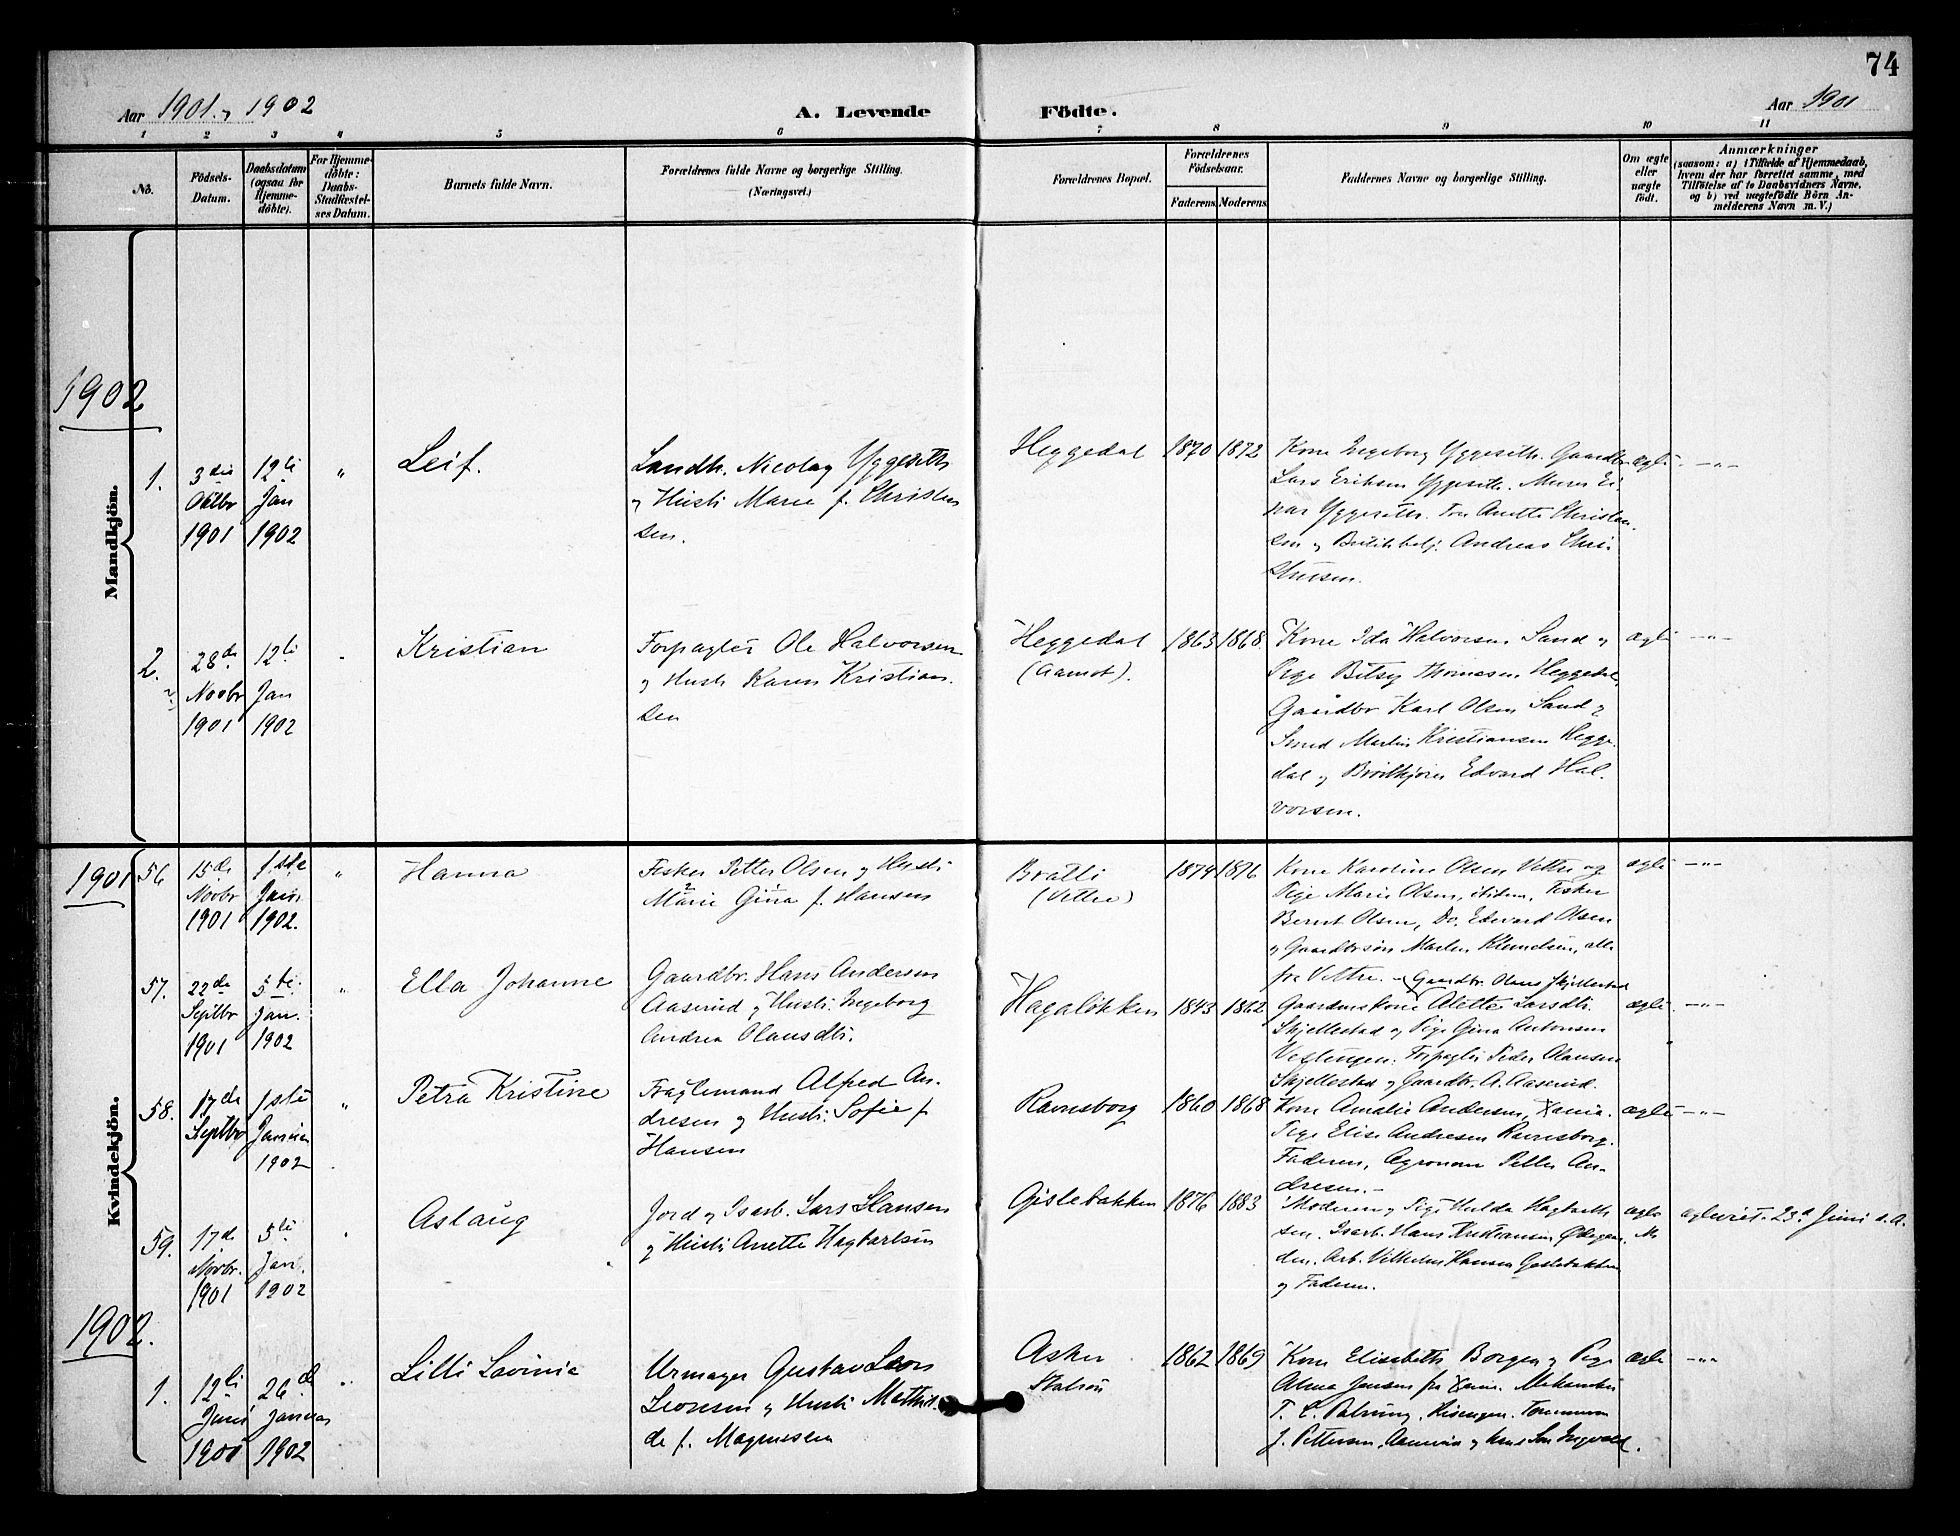 74
Aar 1901, 1902
A. Levende
Födte.
Aar 1901
1 2 3 4 5 6 7 8 9 10 11
No.
Födsels-Datum.
Daabsdatum (ogsaa for Hjemmedöbte).
For Hjemmedöbte: Daabs-Stadfæstelses Datum.
Barnets fulde Navn.
Forældrenes fulde Navne og borgerlige Stilling. (Næringsvei.)
Forældrenes Bopæl.
Forældrenes Födselsaar.
Faderens. Moderens.
Faddernes Navne og borgerlige Stilling.
Om ægte eller uægte födt.
Anmærkninger
(saasom: a) i Tilfælde af Hjemmedaab, hvem der har forrettet samme, med Tilföielse af to Daabsvidners Navne, og b) ved uægtefödte Börn Anmelderens Navn m. V.)
Mandkjön.
1902
1.
3die Oktbr 1901
12te Jan 1902
"
Leif.
Landh. Nicolay Yggeseth
og Hustr Marie f. Christen
sen.
Heggedal
1870
1872
Kone Ingeborg Yggeseth. Gaardbr.
Lars Eriksen Yggeseth. Murer Ei-
nar Yggeseth. Anette Christen-
sen og Andreas Chri-
stensen.
ægte
-"-
2.
28de Novbr 1901
12te Jan 1902
Kristian
Forpagter Ole Halvorsen
og Hustr Karen Kristian-
sen
Heggedal
(Aamot).
1863
1868
Kone Ida Halvorsen Sand og
Pige Betsy Thomesen Heggedal,
Gaardbr Karl Olsen Sand og
Smed Martin Kristiansen Hegge-
dal og Edvard Hal-
vorsen.
ægte
-"-
Kvindekjön.
1901
56
15de Novbr 1901
1ste Jan. 1902.
"
Hanna
Fisker Petter Olsen og Hustr
Marie Gina f. Hansen
Bratli
(Vettre)
1874
1876
Kone Karoline Olsen Vettre og
Pige Marie Olsen, ibidem, Fisker
Bernt Olsen, Do. Edvard Olsen
og Gaardbrsön Martin Knudsen, alle
fra Vettre.
ægte
-"-
57.
22de Septbr 1901
5te Jan. 1902
"
Ella Johanne
Gaardbr. Hans Andersen
Aaserud og Hustr. Ingeborg
Andrea Olausdtr.
Hagalökken
1843
1862
Gaardbr. Olaus Skjellestad
Gaardmskone Alette Larsdtr.
Skjellestad og Pige Gina Antonsen
Forpagter Peder Olausen
Skjellestad og Gaardbr. A. Aaserud.
ægte
-"-
58.
17de Septbr
1ste Januar 1902
"
Petra Kristine
Alfred An-
dresen og Hustr. Sofie f.
Hansen
Ravnsborg
1860
1868
Kone Amalie Andersen, Xania.
Pige Elise Andresen Ravnsborg.
Faderen, Agronom Petter An-
dresen.
ægte
-"-
59.
17de Novbr. 1901
5te Jan. 1902
Aslaug
Jord og Isarb. Lars Hansen
og Hustr Anette Hagbartsen
Gislebakken
1876
1883
Moderen og Pige Hulda Hagbarth-
sen. Isarb. Hans Kristiansen
Arb. Vilhelm Hansen Gislebakken
og Faderen.
ægte
23d Juni s. A.
1902.
1.
12te 1901
26de Januar 1902
"
Lilli Lovinie
Urmager Gustav Leon
Leonsen og Hustr Mathil-
de f. Magnussen
Asker
1862
1869
Kone Elisabeth Borgen og Pige
Alma Jensen fra Xania.
J. Pettersen,
ægte
-"-